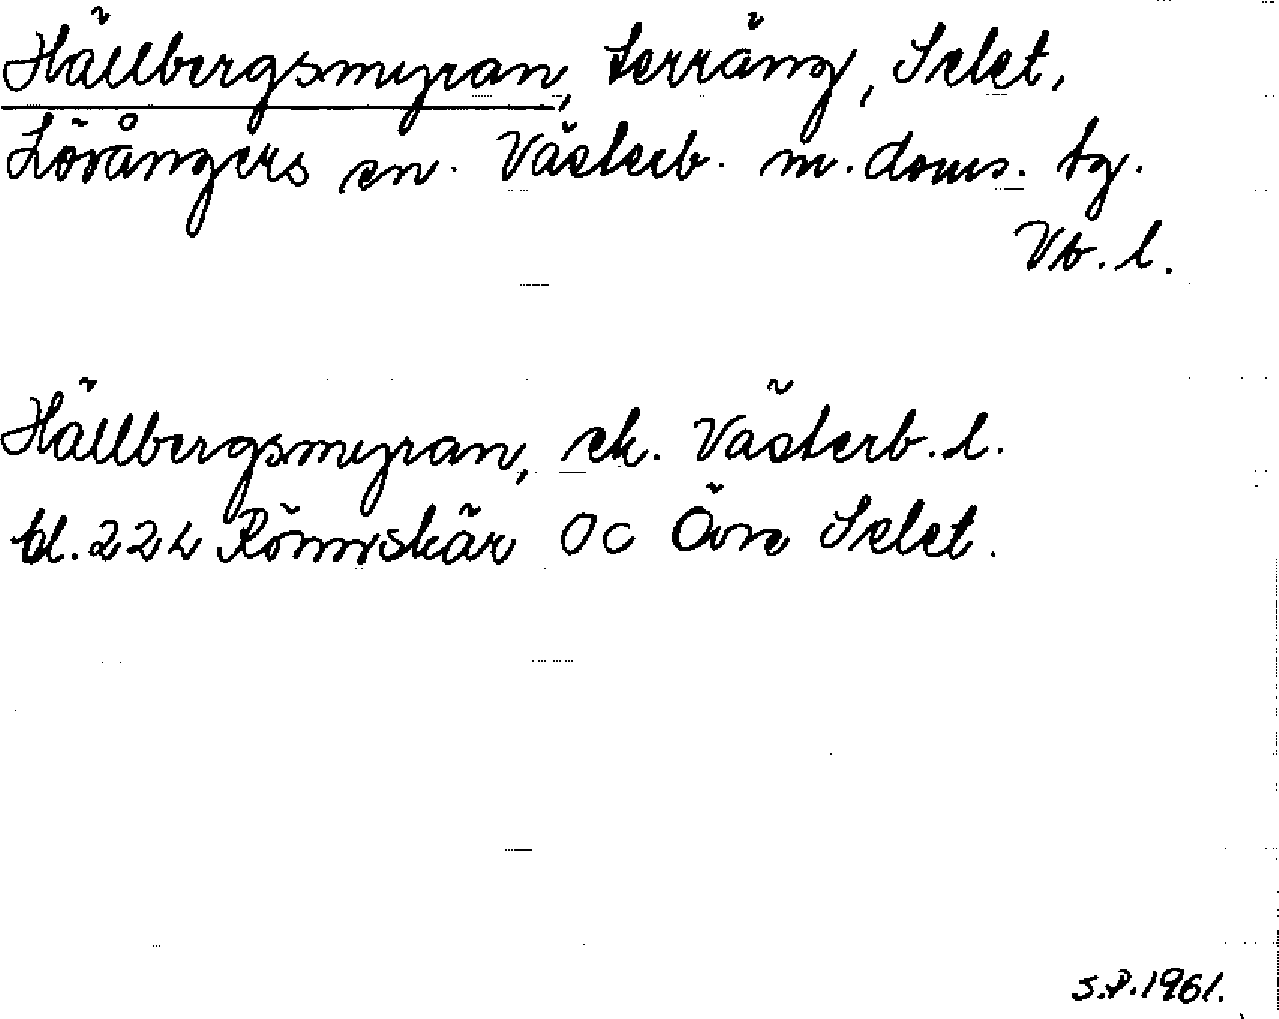 Hällbergsmyran, terräng, Selet,
Lövångers sn. Västerb. m. doms. tg.
Vb. l.
Hällbergsmyran, ek. Västerb. l.
bl. 224 Rönnskär OC Övre Selet.
S.P. 1961.